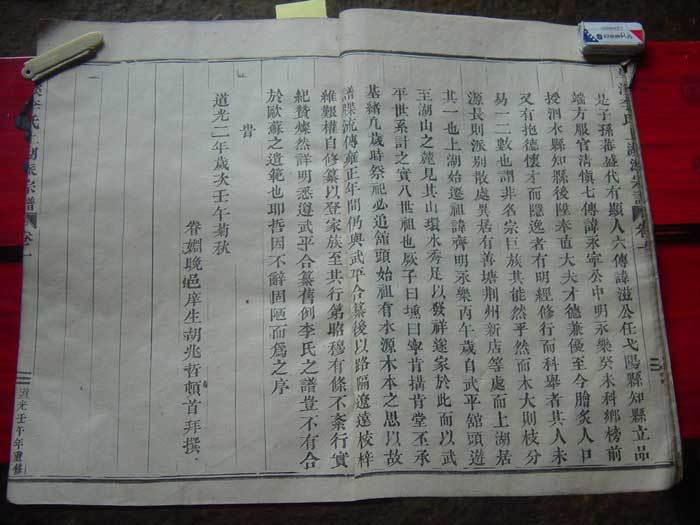 是子孫蕃盛代有顯人六傳諱滋公任弋陽縣知縣立品
端方服官清慎七傳諱承寧公中明永樂癸未科鄉榜前
授泗水縣知縣後陞奉直大夫才德兼優至今膾炙人口
又有抱德懷才而隱逸者有明經修行而科舉者其人未
易一二數也謂非名宗巨族其能然乎然而木大則枝分
源長則派別散處異居有善塘荆州新店等處而上湖居
其一也上湖始遷祖諱齊明永樂丙午歲自武平舘頭遊
至湖山之麓見其山環水秀足以發祥遂家於此而以武
平世系計之實八世祖也厥子曰壎曰寧肯搆肯堂丕承
基緒凡歲時祭祀必追舘頭始祖有水源木本之思以故
譜牒流傳雍正年間仍與武平合纂後以路隔遼遠梭梓
維艱權自修纂以登家族至其行第昭穆有條不紊行實
紀贊燦然詳明悉遵武平合纂舊例李氏之譜豈不有合
於歐蘇之遺範也耶哲因不辭固陋而爲之序
旹
道光二年歲次壬午菊秋
眷姻晚邑庠生胡兆哲頓首拜撰
李氏上湖派宗譜
卷一
道光壬午年重修